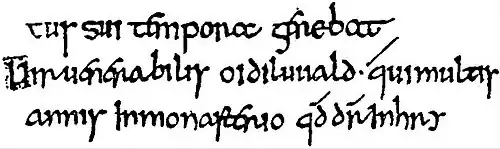 tus sui tempora gerebat
Uir uenerabilis oidiluuald· qui multis
annis inmonasterio qđ dr̄